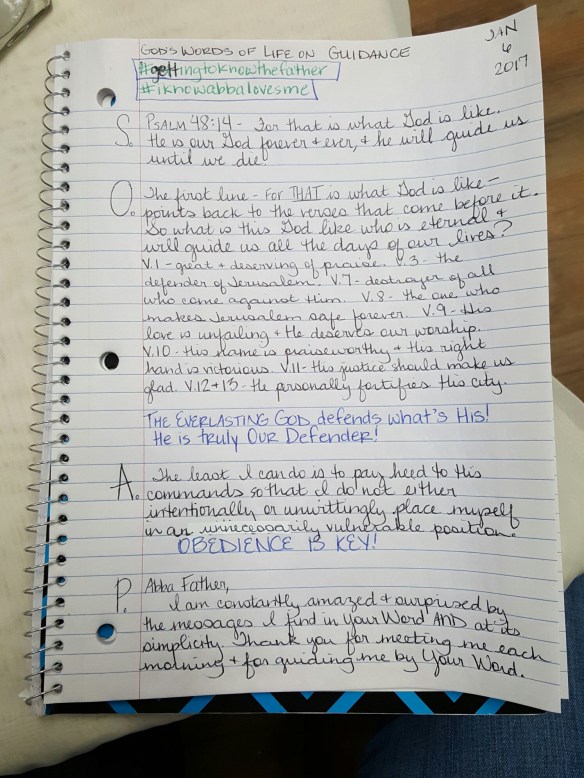 GOD'S WORDS OF LIFE ON GUIDANCE
JAN
6
2017
#gettingtoknowthefather
#iknowabbalovesme
S. PSALM 48:14 - For that is what God is like.
He is our God forever + ever, + he will guide us
until we die.
O. The first line - For THAT is what God is like -
points back to the verses that come before it.
So what is this God like who is eternal +
will guide us all the days of our lives?
V.1 - great + deserving of praise. V.3 - the
defender of Jerusalem. V.7 - destroyer of all
who come against Him. V.8 - the one who
makes Jerusalem safe forever. V.9 - His
love is unfailing + He deserves our worship.
V.10 - His name is praiseworthy + His right
hand is victorious. V.11 - His justice should make us
glad. V.12+13 - He personally fortifies His city.
THE EVERLASTING GOD defends what's His!
He is truly OUR Defender!
A. The least I can do is to pay heed to His
commands so that I do not either
intentionally or unwittingly place myself
in an unnecessarily vulnerable position.
OBEDIENCE IS KEY!
P. Abba Father,
I am constantly amazed + surprised by
the messages I find in Your Word AND at its
simplicity. Thank you for meeting me each
morning + for guiding me by Your Word.